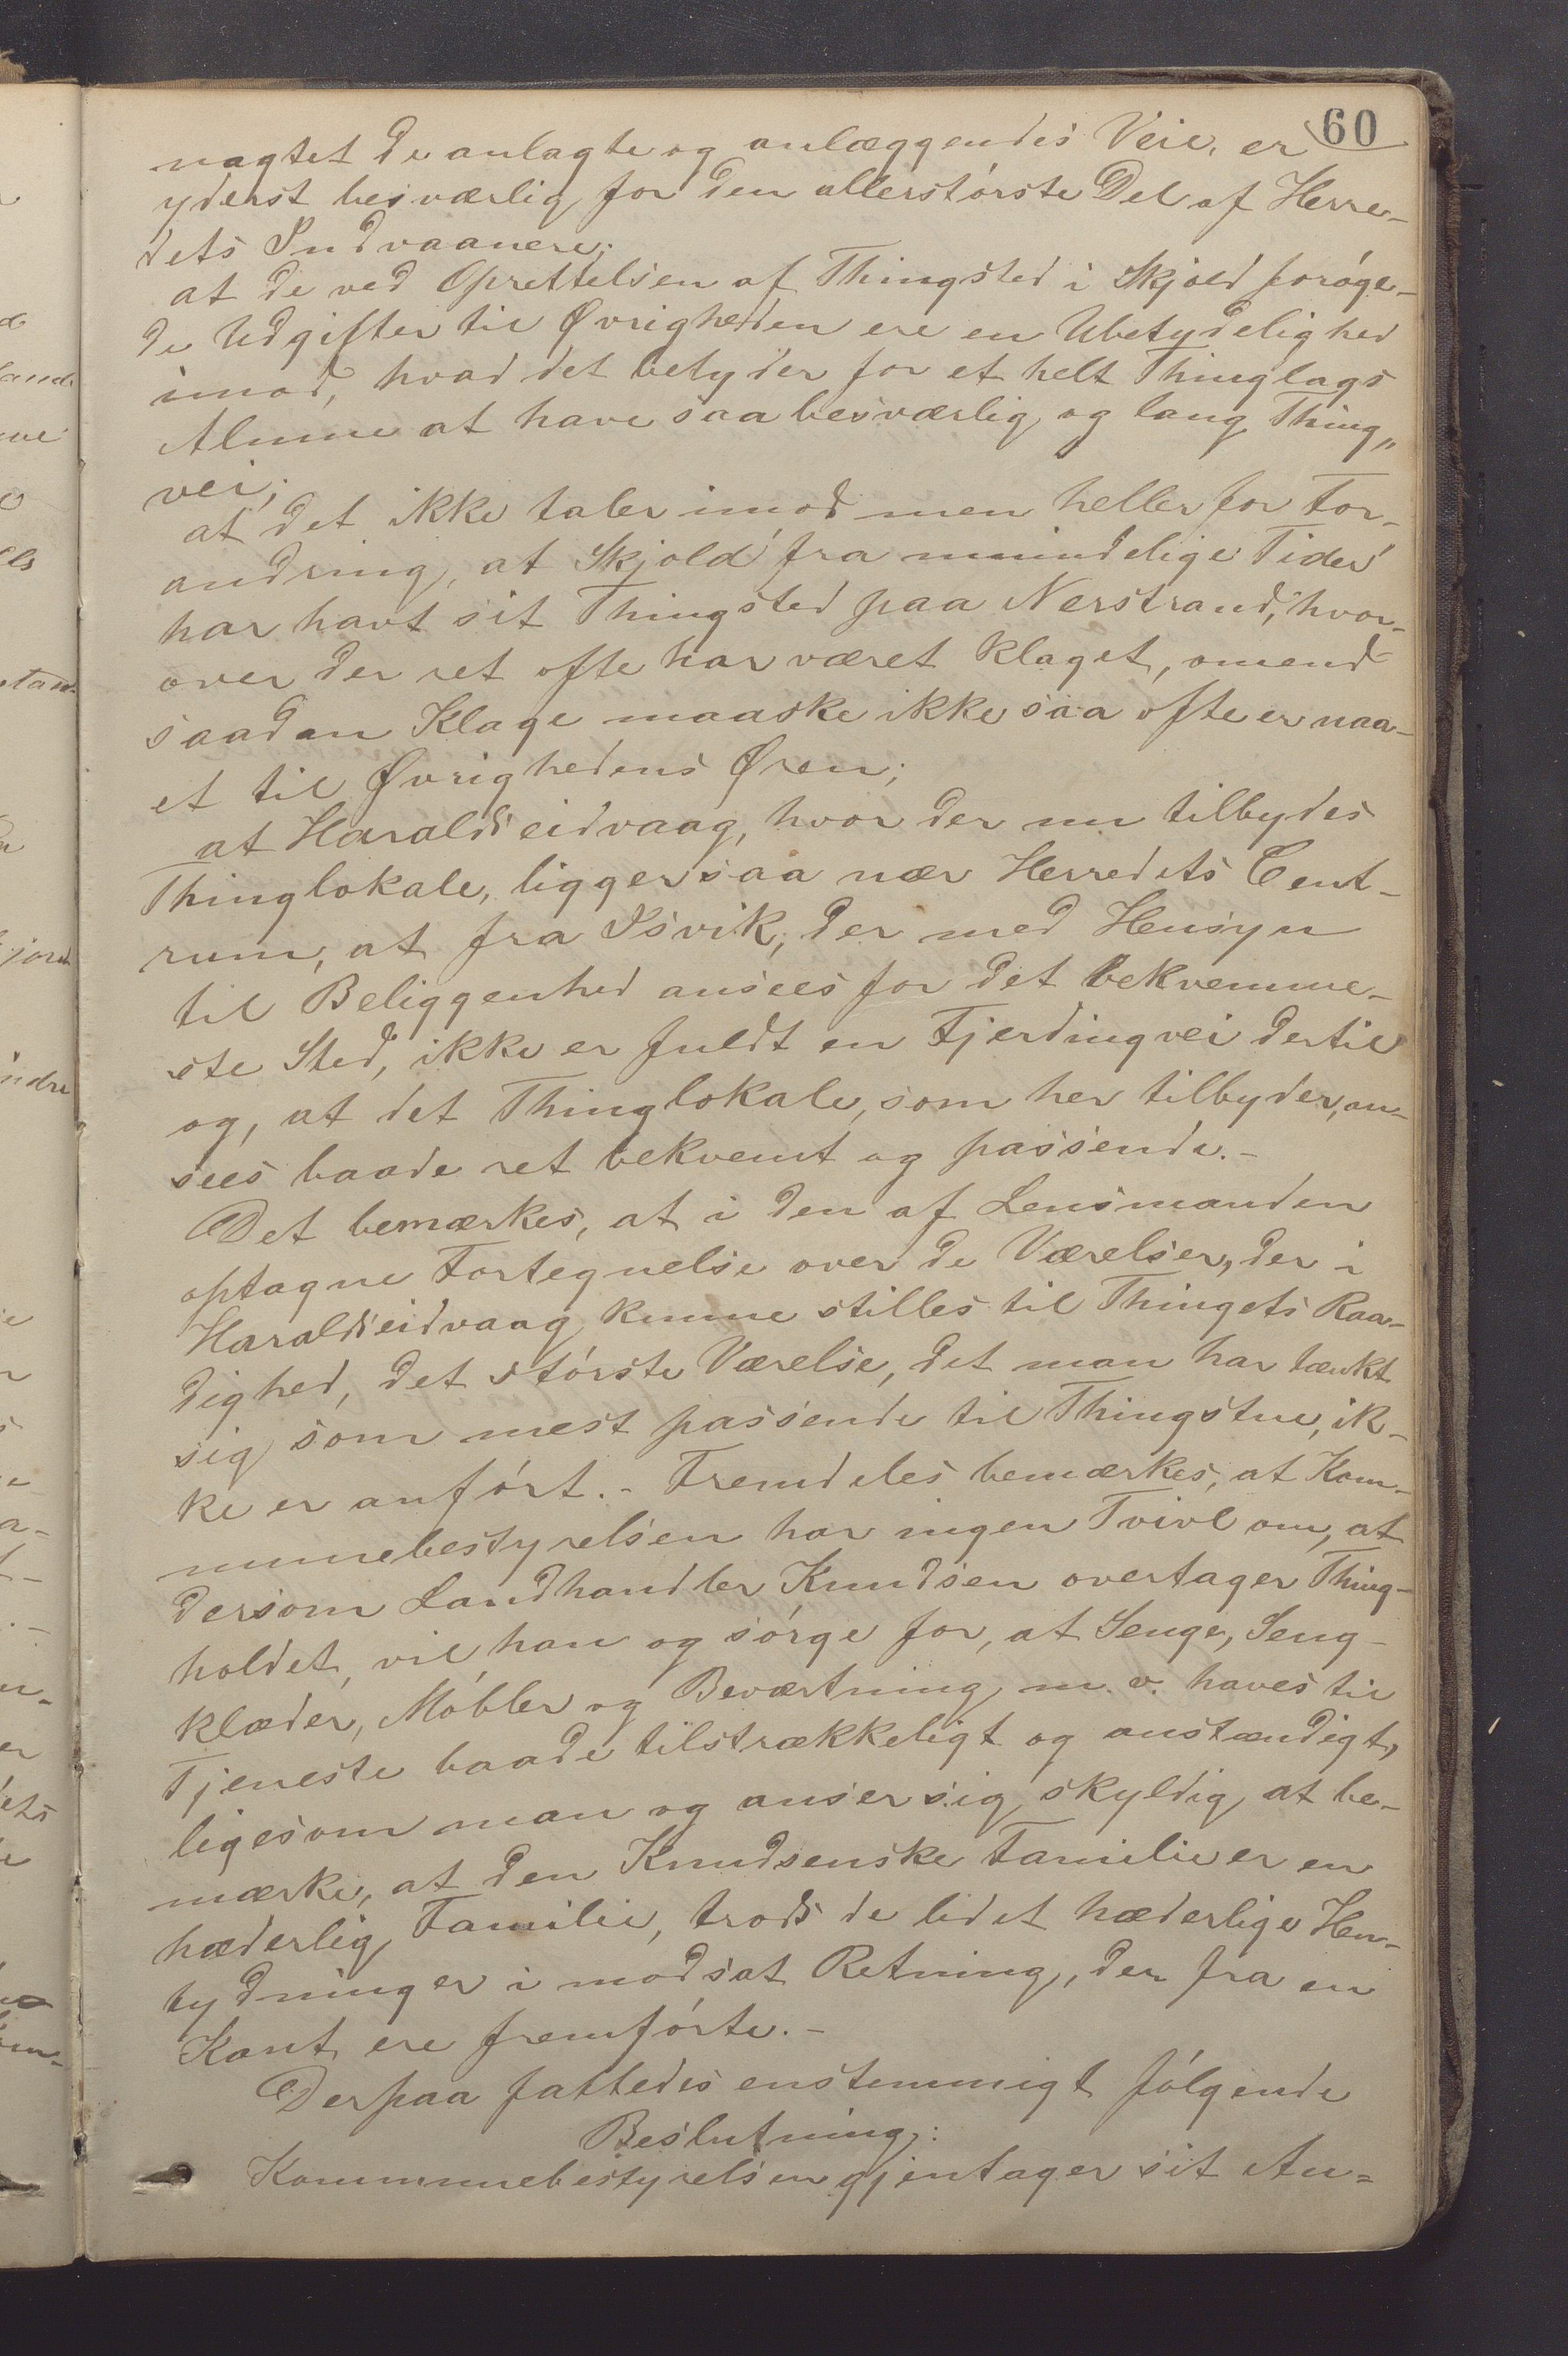 60
nagtet de anlagte og anlæggendes Veie, er
yderst besværlig for den allerstórste Del af Herre-
dets Indvaanere;
at de ved Oprettelsen af Thingsted i Skjold foróge-
de Udgifter til Øvrigheden ere en Ubetydelighed
imod, hvad det betyder for et helt Thinglags
Almue at have saa besværlig og lang Thing„
vei;
at det ikke taler imod men heller for For-
andring, at Skjold fra umindelige Tider
har havt sit Thingsted paa Nerstrand, hvor-
over der ret ofte har været klaget, omend
saadan Klage maaske ikke saa ofte er naa-
et til Øvrighedens Øren;
at Haraldseidvaag, hvor der nu tilbydes
Thinglokale, ligger saa nær Herredets Cent-
rum, at fra Isvik, der med Hensyn
til Beliggenhed ansees for det bekvemme-
ste Sted, ikke er fuldt en Fjerdingvei dertil
og, at det Thinglokale, som her tilbydes, an-
sees baade ret bekvemt og passende.-
Det bemærkes, at i den af Lensmanden
optagne Fortegnelse over de Værelser, der i
Haraldseidvaag kunne stilles til Thingets Raa-
dighed, det stórste Værelse, det man har tænkt
sig som mest passende til Thingstue, ik-
ke er anfórt.- Fremdeles bemærkes, at Kom-
munebestyrelsen har ingen Tvivl om, at
dersom Landhandler Knudsen overtager Thing-
holdet, vil han og sórge for, at Senge, Seng-
klæder, Móbler og Beværtning m. v. haves til
Tjeneste baade tilstrækkeligt og anstændigt,
ligesom man og anser sig skyldig at be-
mærke, at den Knudsenske Familie er en
hæderlig Familie, trods de lidet hæderlige Hen-
tydninger i modsat Retning, der fra en
Kant ere fremfórte.-
Derpaa fattedes enstemmigt fólgende
Beslutning:
Kommunebestyrelsen gjentager sit An-